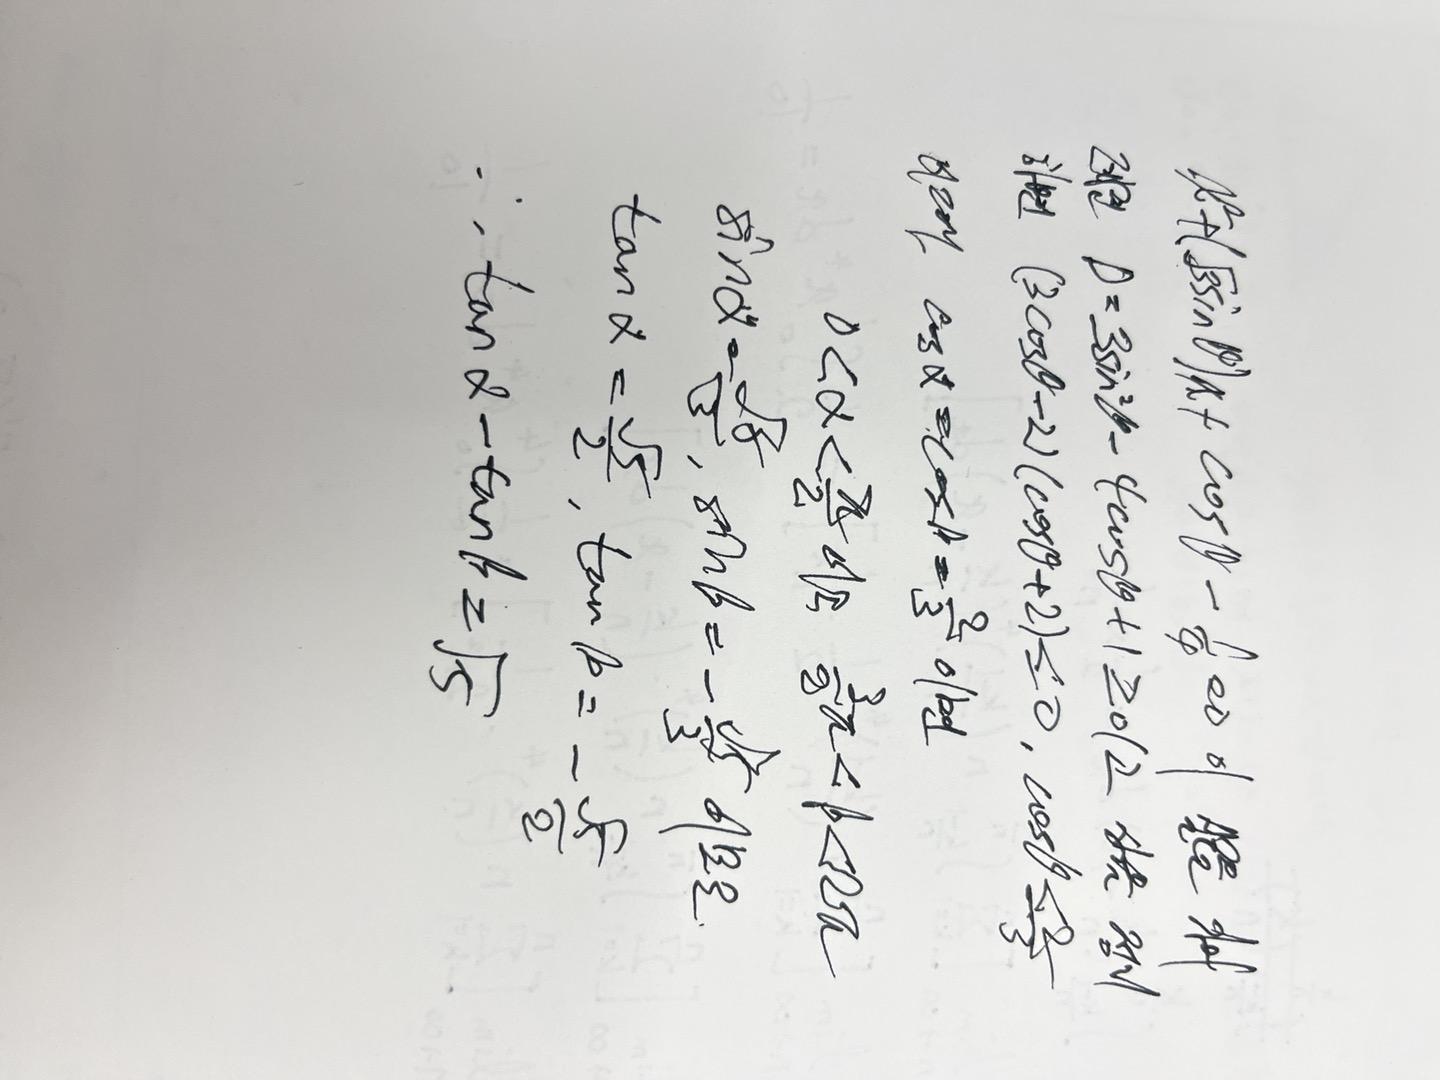 x²+(√3sinθ)x+cosθ-1/4=0이 실근
D=3sin²θ-4cosθ+1≥0
(3cosθ-2)(cosθ+2)≤0, cosθ≤2/3
cosα=cosβ=2/3이며
0<α<π/2 3/2π<β<2π
sinα=√5/3, sinβ=-√5/3 이므로
tanα=√5/2, tanβ=-√5/2
∴, tanα-tanβ=√5